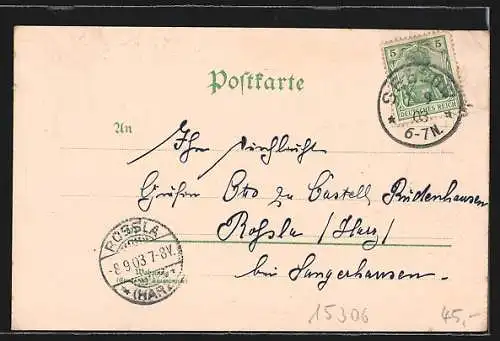 5 5
DEUTSCHES REICH
03
6-7N.
Postkarte
An
Ihre Durchlaucht
Otto zu Castell Rüdenhausen
Rossla /Harz/
bei Sangerhausen.
ROSSLA
-8.9.03.7-8V.
Wohnung
*(HARZ)*
15306 45,-